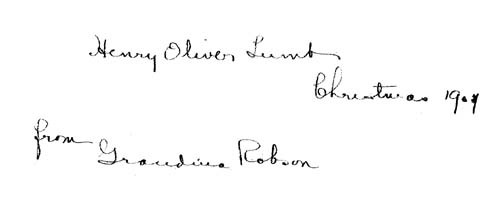 Henry Oliver Lumb
Christmas 1907
from Grandma Robson